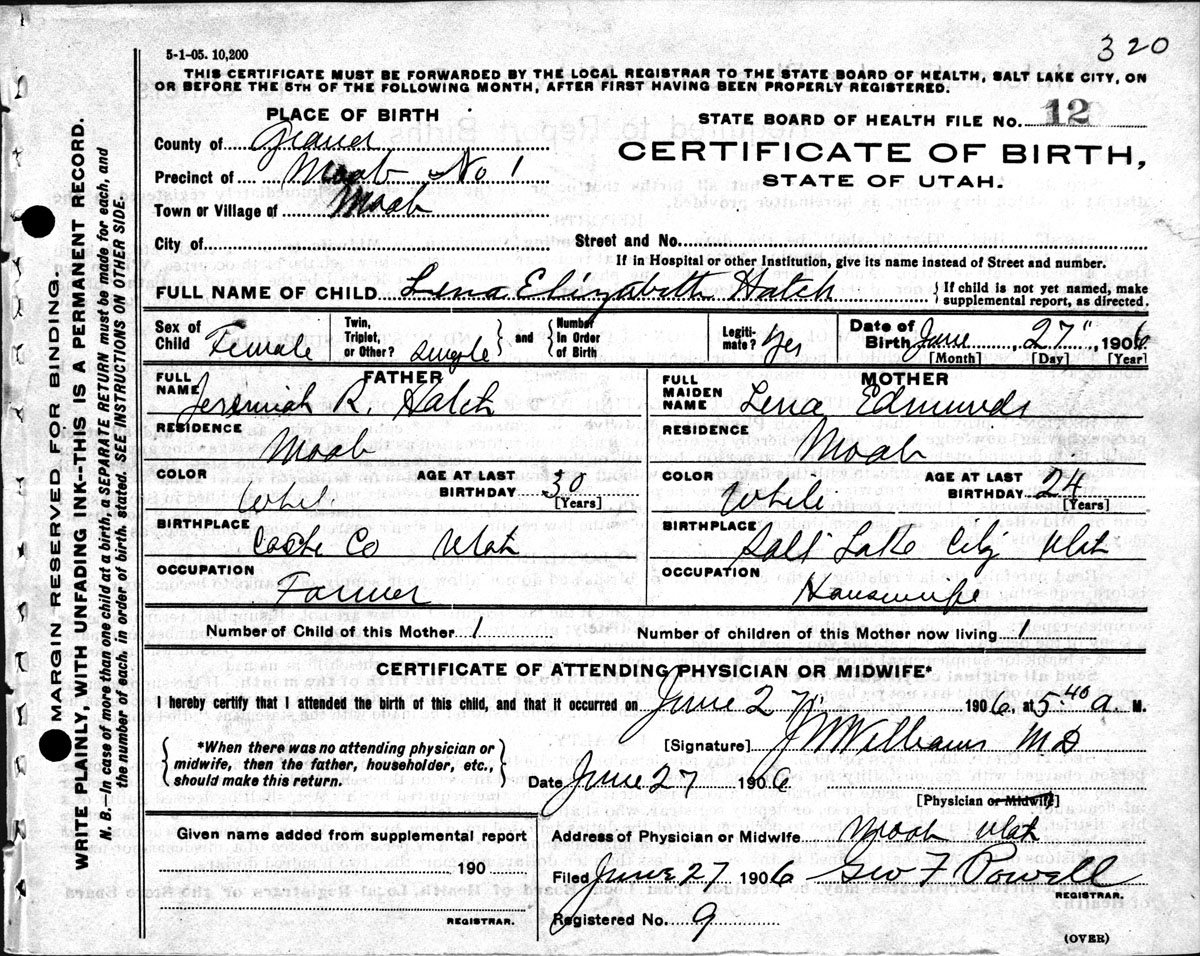 5-1-05. 10,200
320
THIS CERTIFICATE MUST BE FORWARDED BY THE LOCAL REGISTRAR TO THE STATE BOARD OF HEALTH, SALT LAKE CITY, ON
OR BEFORE THE 5TH OF THE FOLLOWING MONTH, AFTER FIRST HAVING BEEN PROPERLY REGISTERED.
PLACE OF BIRTH
STATE BOARD OF HEALTH FILE NO. 12
County of Grand
CERTIFICATE OF BIRTH,
STATE OF UTAH.
Precinct of Moab No 1
Town or Village of Moab
City of Street and No.
If in Hospital or other Institution, give its name instead of Street and number.
FULL NAME OF CHILD Lena Elizabeth Hatch } If child is not yet named, make
supplemental report, as directed.
Sex of Child Female
Twin, Triplet, or Other? single } and { Number in Order of Birth
Legiti-mate? yes
Date of Birth June 27", 1906
[Month] [Day] [Year]
FATHER
FULL NAME Jeremiah R. Hatch
RESIDENCE
Moab
COLOR White
AGE AT LAST BIRTHDAY 30
[Years]
BIRTHPLACE
Cache Co Utah
OCCUPATION
Farmer
MOTHER
FULL MAIDEN NAME Lena Edmunds
RESIDENCE
Moab
COLOR White
AGE AT LAST BIRTHDAY 24
[Years]
BIRTHPLACE
Salt Lake City Utah
OCCUPATION
Housewife
Number of Child of this Mother 1 Number of children of this Mother now living 1
CERTIFICATE OF ATTENDING PHYSICIAN OR MIDWIFE*
I hereby certify that I attended the birth of this child, and that it occurred on June 27, 1906, at 5:40 a. M.
{ *When there was no attending physician or
midwife, then the father, householder, etc.,
should make this return. }
[Signature] J W Williams MD
Date June 27 1906
[Physician or Midwife]
Given name added from supplemental report
190
REGISTRAR.
Address of Physician or Midwife Moab Utah
Filed June 27 1906 Geo F Powell
REGISTRAR.
Registered No. 9
(OVER)
MARGIN RESERVED FOR BINDING.
WRITE PLAINLY, WITH UNFADING INK--THIS IS A PERMANENT RECORD.
N. B.—In case of more than one child at a birth, a SEPARATE RETURN must be made for each, and
the number of each, in order of birth, stated. SEE INSTRUCTIONS ON OTHER SIDE.